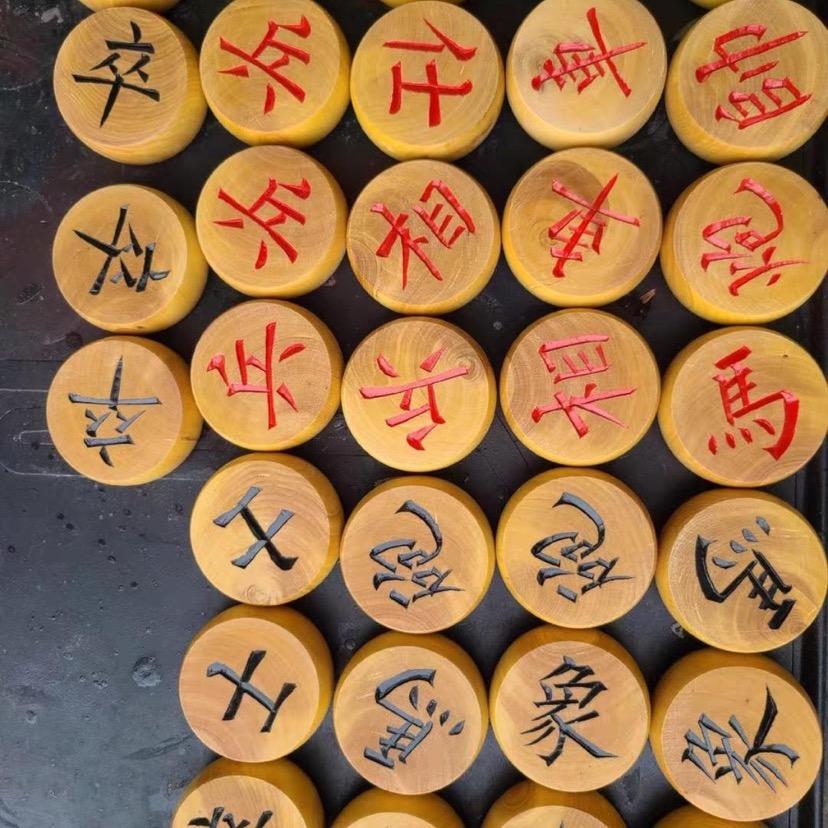 卒 兵 仕 車 帥
卒 兵 相 車 炮
卒 兵 兵 相 馬
士 砲 砲 馬
士 馬 象 象